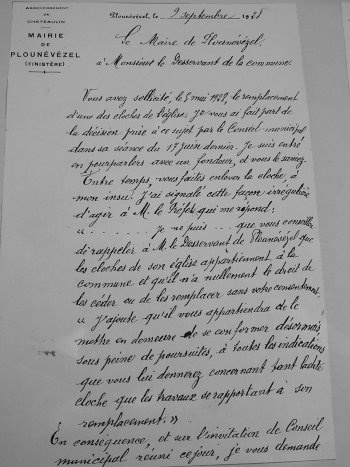 ARRONDISSEMENT
DE
CHATEAULIN
MAIRIE
DE
PLOUNÉVÉZEL
(FINISTÈRE)
Plounévézel, le 9 septembre 1928
Le Maire de Plounévézel,
à Monsieur le Desservant de la commune.
Vous avez sollicité, le 8 mai 1928, le remplacement
d'une des cloches de l'église; je vous ai fait part de
la décision prise à ce sujet par le Conseil municipal
dans sa séance du 17 juin dernier. Je suis entré
en pourparlers avec un fondeur, et vous le savez.
Entre temps, vous faites enlever la cloche, à
mon insu; j'ai signalé cette façon irrégulière
d'agir à M. le Préfet, qui me répond:
" . . . . . . Je ne puis . . . que vous conseiller
de rappeler à M. le Desservant de Plounévézel que
les cloches de son église appartiennent à la
commune et qu'il n'a nullement le droit de
les céder ou de les remplacer sans votre consentement.
" J'ajoute qu'il vous appartiendra de le
mettre en demeure de se conformer désormais
sous peine de poursuites, à toutes les indications
que vous lui donnerez concernant tant ladite
cloche que les travaux se rapportant à son
remplacement. ".
En conséquence, et sur l'invitation du Conseil
municipal réuni ce jour, je vous demande